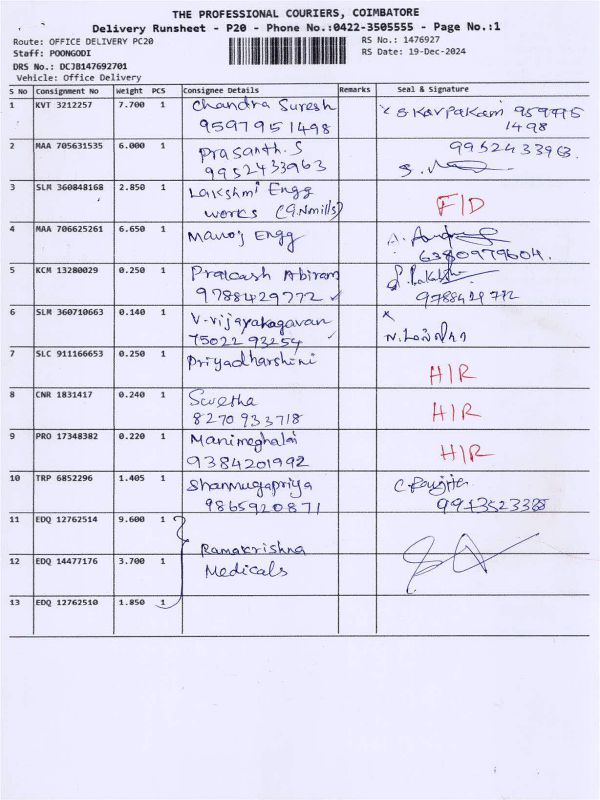 THE PROFESSIONAL COURIERS, COIMBATORE
Delivery Runsheet - P20 - Phone No.:0422-3505555 - Page No.:1
Route: OFFICE DELIVERY PC20
RS No.: 1476927
Staff: POONGODI
RS Date: 19-Dec-2024
DRS No.: DCJB147692701
Vehicle: Office Delivery
S No Consignment No Weight PCS Consignee Details Remarks Seal & Signature
1 KVT 3212257 7.700 1 Chandra Suresh S Karpakam 959795
9597951498 1498
2 MAA 705631535 6.000 1 Prasanth.S 9952433963.
9952433963
3 SLM 360848168 2.850 1 Lakshmi Engg F/D
works (G.Nmills)
4 MAA 706625261 6.650 1 Manoj Engg
6380979604.
5 KCM 13280029 0.250 1 Prakash Abiram
9788429772 9788429772
6 SLM 360710663 0.140 1 V-vijayakagavan
75022 93254
7 SLC 911166653 0.250 1 Priyadharshini H/R
8 CNR 1831417 0.240 1 Swetha H/R
8270933718
9 PRO 17348382 0.220 1 Manimeghalai H/R
9384201992
10 TRP 6852296 1.405 1 Shanmugapriya
9865920871
11 EDQ 12762514 9.600 1
Ramakrishna
12 EDQ 14477176 3.700 1 Medicals
13 EDQ 12762510 1.850 1